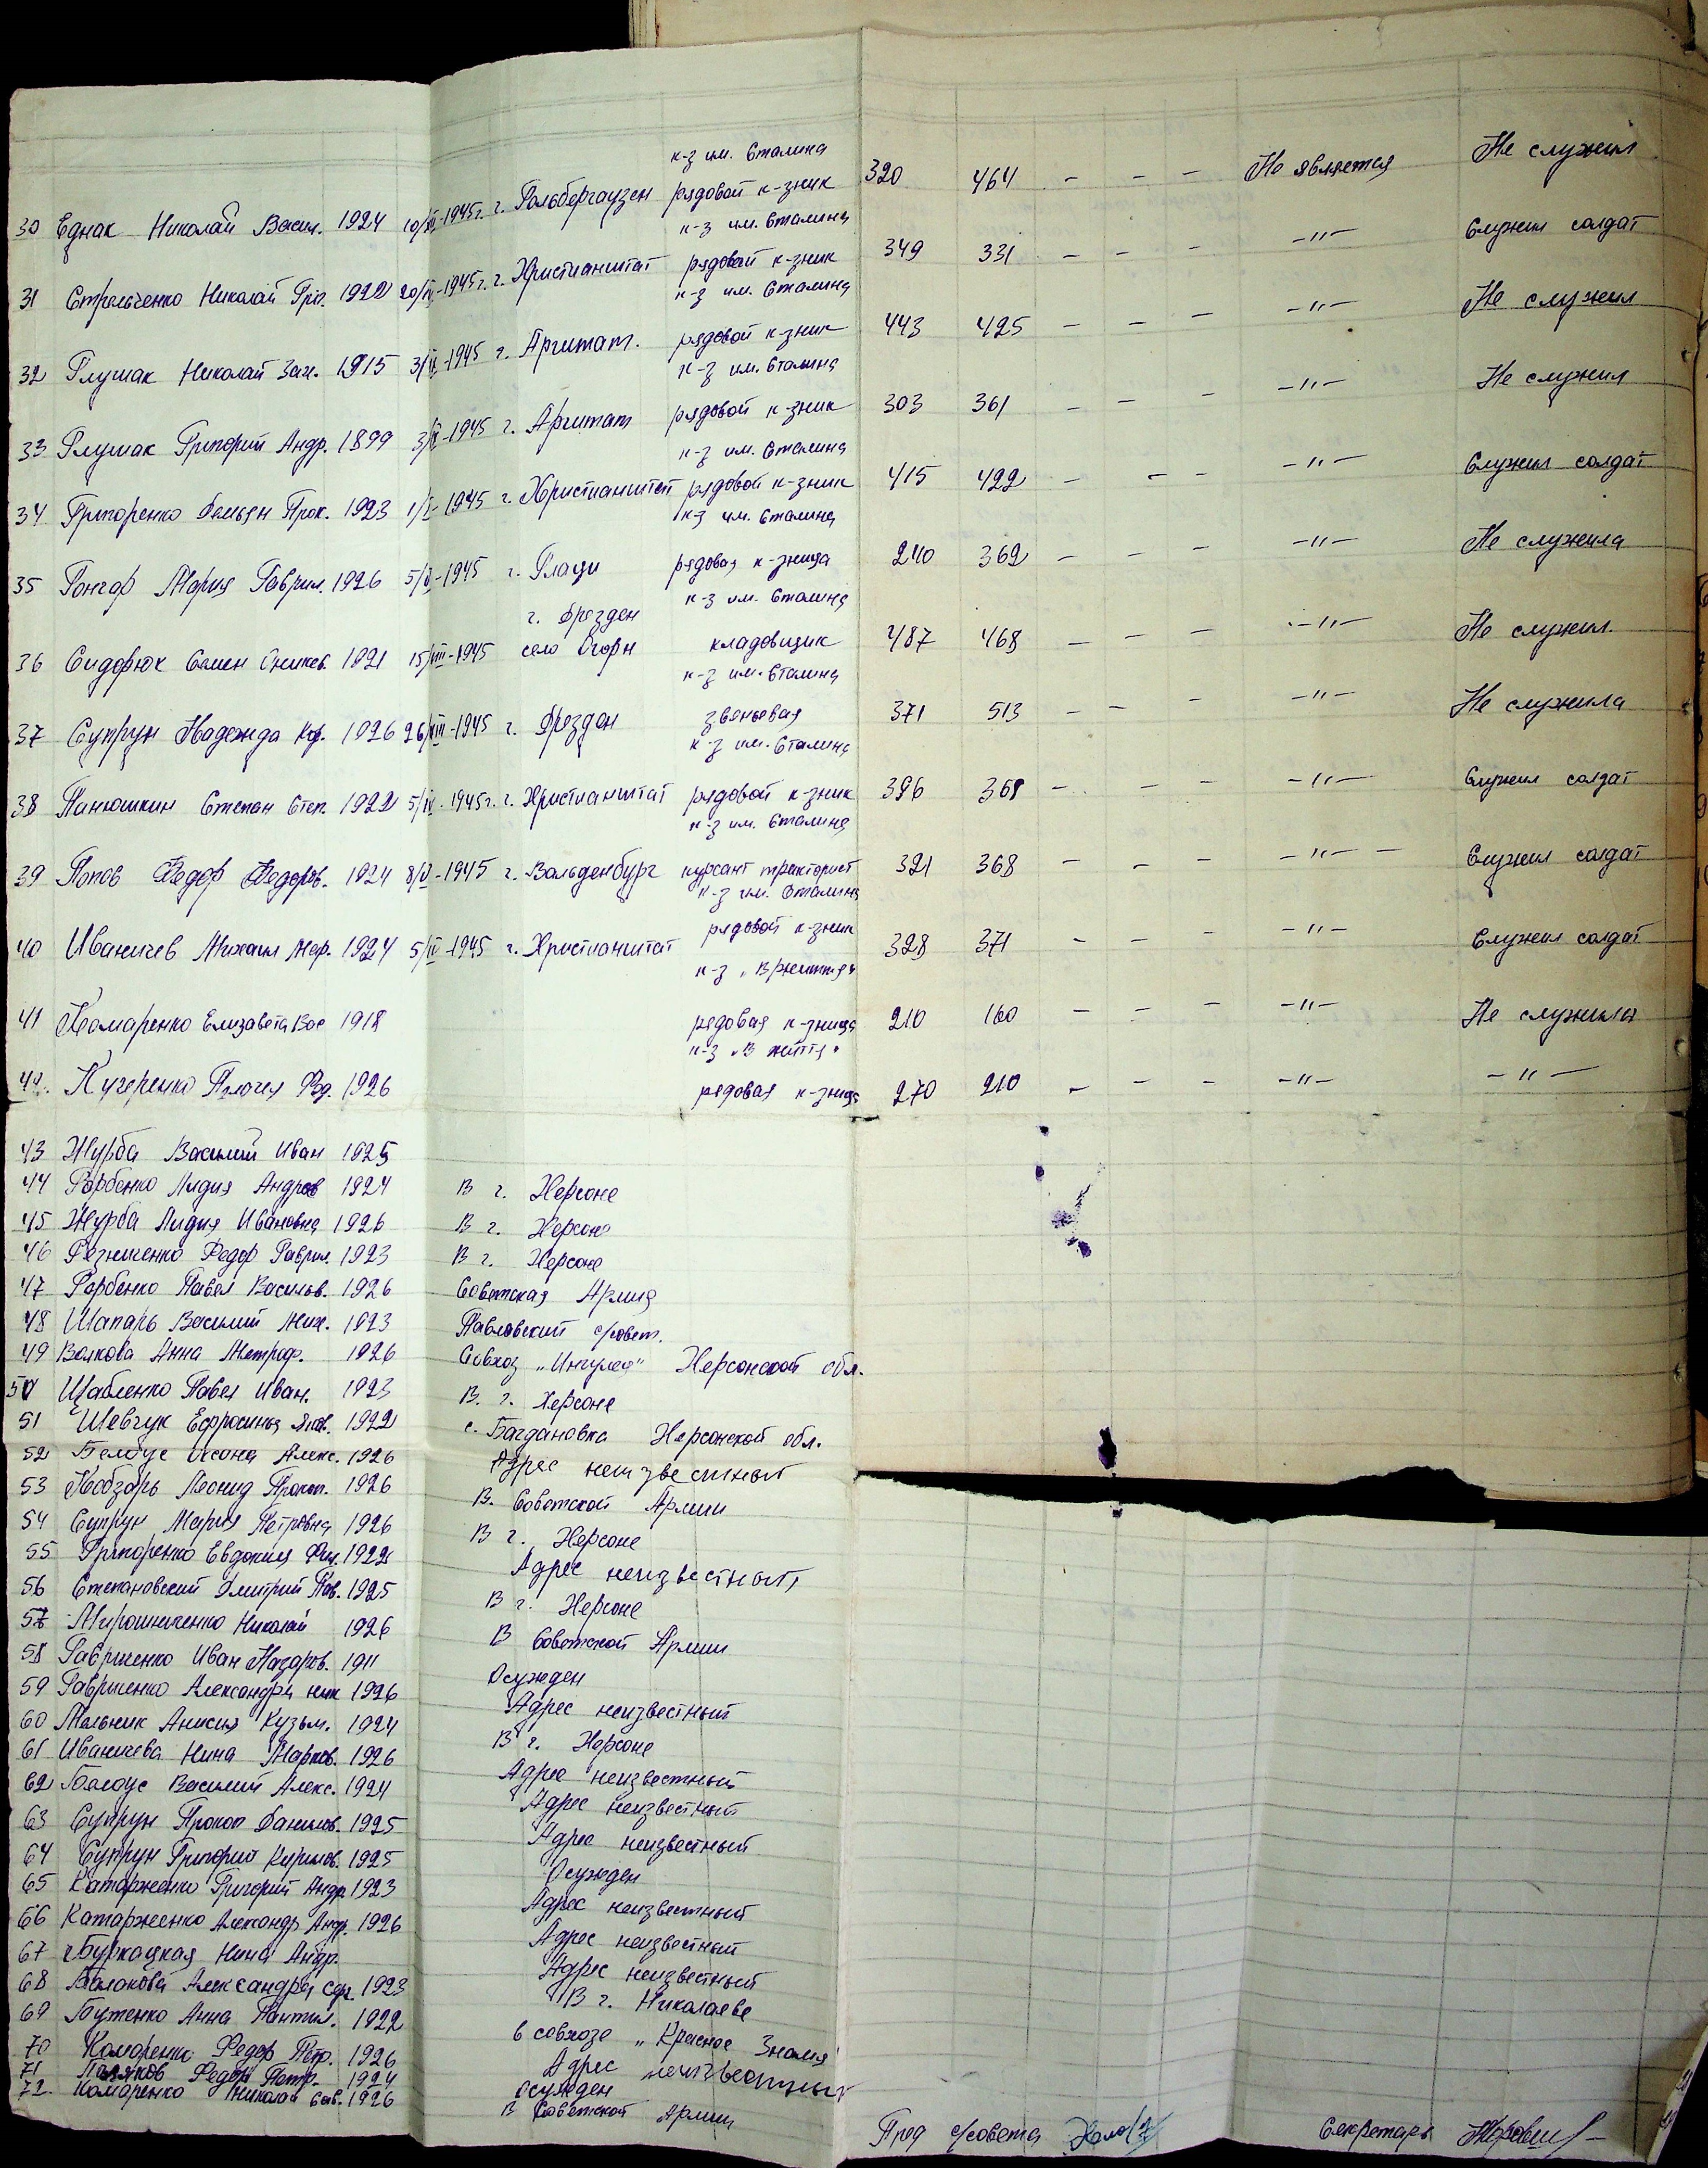 к-з им. Сталина
30 Еднак Николай Васил. 1924 10/IV-1945 г. г. Гольбергаузен рядовой к-зник 320 464 - - - Не является Не служил
к-з им. Сталина
31 Стрельченко Николай Григ. 1922 20/IV-1945 г. г. Христианштат рядовой к-зник 349 331 - - - -"- Служил солдат
к-з им. Сталина
32 Глушак Николай Зах. 1915 3/V-1945 г. Арштат. рядовой к-зник 443 425 - - - -"- Не служил
к-з им. Сталина
33 Глушак Григорий Андр. 1899 3/V-1945 г. Арштат рядовой к-зник 303 361 - - - -"- Не служил
к-з им. Сталина
34 Григоренко Демьян Прок. 1923 1/V-1945 г. Христианштат рядовой к-зник 415 422 - - - -"- Служил солдат
к-з им. Сталина
35 Гончар Мария Гаврил. 1926 5/V-1945 г. Глаци рядовая к-зница 240 362 - - - -"- Не служила
г. Дрезден к-з им. Сталина
36 Сидорюк Семен 1921 15/VIII-1945 село Огорн кладовщик 487 468 - - - -"- Не служил.
к-з им. Сталина
37 Супрун Надежда Кир. 1926 26/VIII-1945 г. Дрезден звеньевая 371 513 - - - -"- Не служила
к-з им. Сталина
38 Панюшкин Степан Степ. 1922 5/IV-1945 г. г. Христианштат рядовой к-зник 396 368 - - - -"- Служил солдат
к-з им. Сталина
39 Попов Федор Федоров. 1924 8/V-1945 г. Вальденбург курсант тракторист 321 368 - - - -"- - Служил солдат
к-з им. Сталина
40 Иваничев Михаил Мар. 1924 5/IV-1945 г. Христианштат рядовой к-зник 328 371 - - - -"- Служил солдат
к-з
41 Комаренко Елизавета Вас 1918 рядовая к-зница 210 160 - - - -"- Не служила
к-з „В життя"
42. Кучеренко Пелагея Фед. 1926 рядовая к-зница 270 210 - - - -"- -"-
43 Журба Василий Иван 1925
44 Горбенко Лидия Андреев 1924 В г. Херсоне
45 Журба Лидия Ивановна 1926 В г. Херсоне
46 Резниченко Федор Гаврил. 1923 В г. Херсоне
47 Горбенко Павел Васильев. 1926 Советская Армия
48 Шапарь Василий Мих. 1923 Павловский с/совет.
49 Волкова Анна Митроф. 1926 Совхоз „Ингулец" Херсонской обл.
50 Щабленко Павел Иван. 1923 В. г. Херсоне
51 Шевчук Ефросинья Яков. 1922 с. Богдановка Херсонской обл.
52 Белоус Оксана Алекс. 1926 Адрес неизвестный
53 Кобзарь Леонид Прокоп. 1926 В. Советской Армии
54 Супрун Мария Петровна 1926 В г. Херсоне
55 Григоренко Евдокия Фил. 1922 Адрес неизвестный
56 Степановский Дмитрий Пав. 1925 В г. Херсоне
57 Мирошниченко Николай 1926 В Советской Армии
58 Гавриленко Иван Назаров. 1911 Осужден
59 Гавриленко Александра ник 1926 Адрес неизвестный
60 Мельник Анисия Кузьм. 1924 В г. Херсоне
61 Иваничева Нина Марков. 1926 Адрес неизвестный
62 Белоус Василий Алекс. 1924 Адрес неизвестный
63 Супрун Прокоп Данилов. 1925 Адрес неизвестный
64 Супрун Григорий Кирилов. 1925 Осужден
65 Катарженко Григорий Андр. 1923 Адрес неизвестный
66 Катарженко Александр Андр. 1926 Адрес неизвестный
67 Буркацкая Нина Андр. Адрес неизвестный
68 Балакова Александра Сер. 1923 В г. Николаеве
69 Бутенко Анна Пантил. 1922 в совхозе „Красное Знамя"
70 Комаренко Федор Петр. 1926 Адрес неизвестный
71 Поляков Федор Петр. 1924 осужден
72. Комаренко Николай Сав. 1926 В Советской Армии
Пред с/совета Секретарь